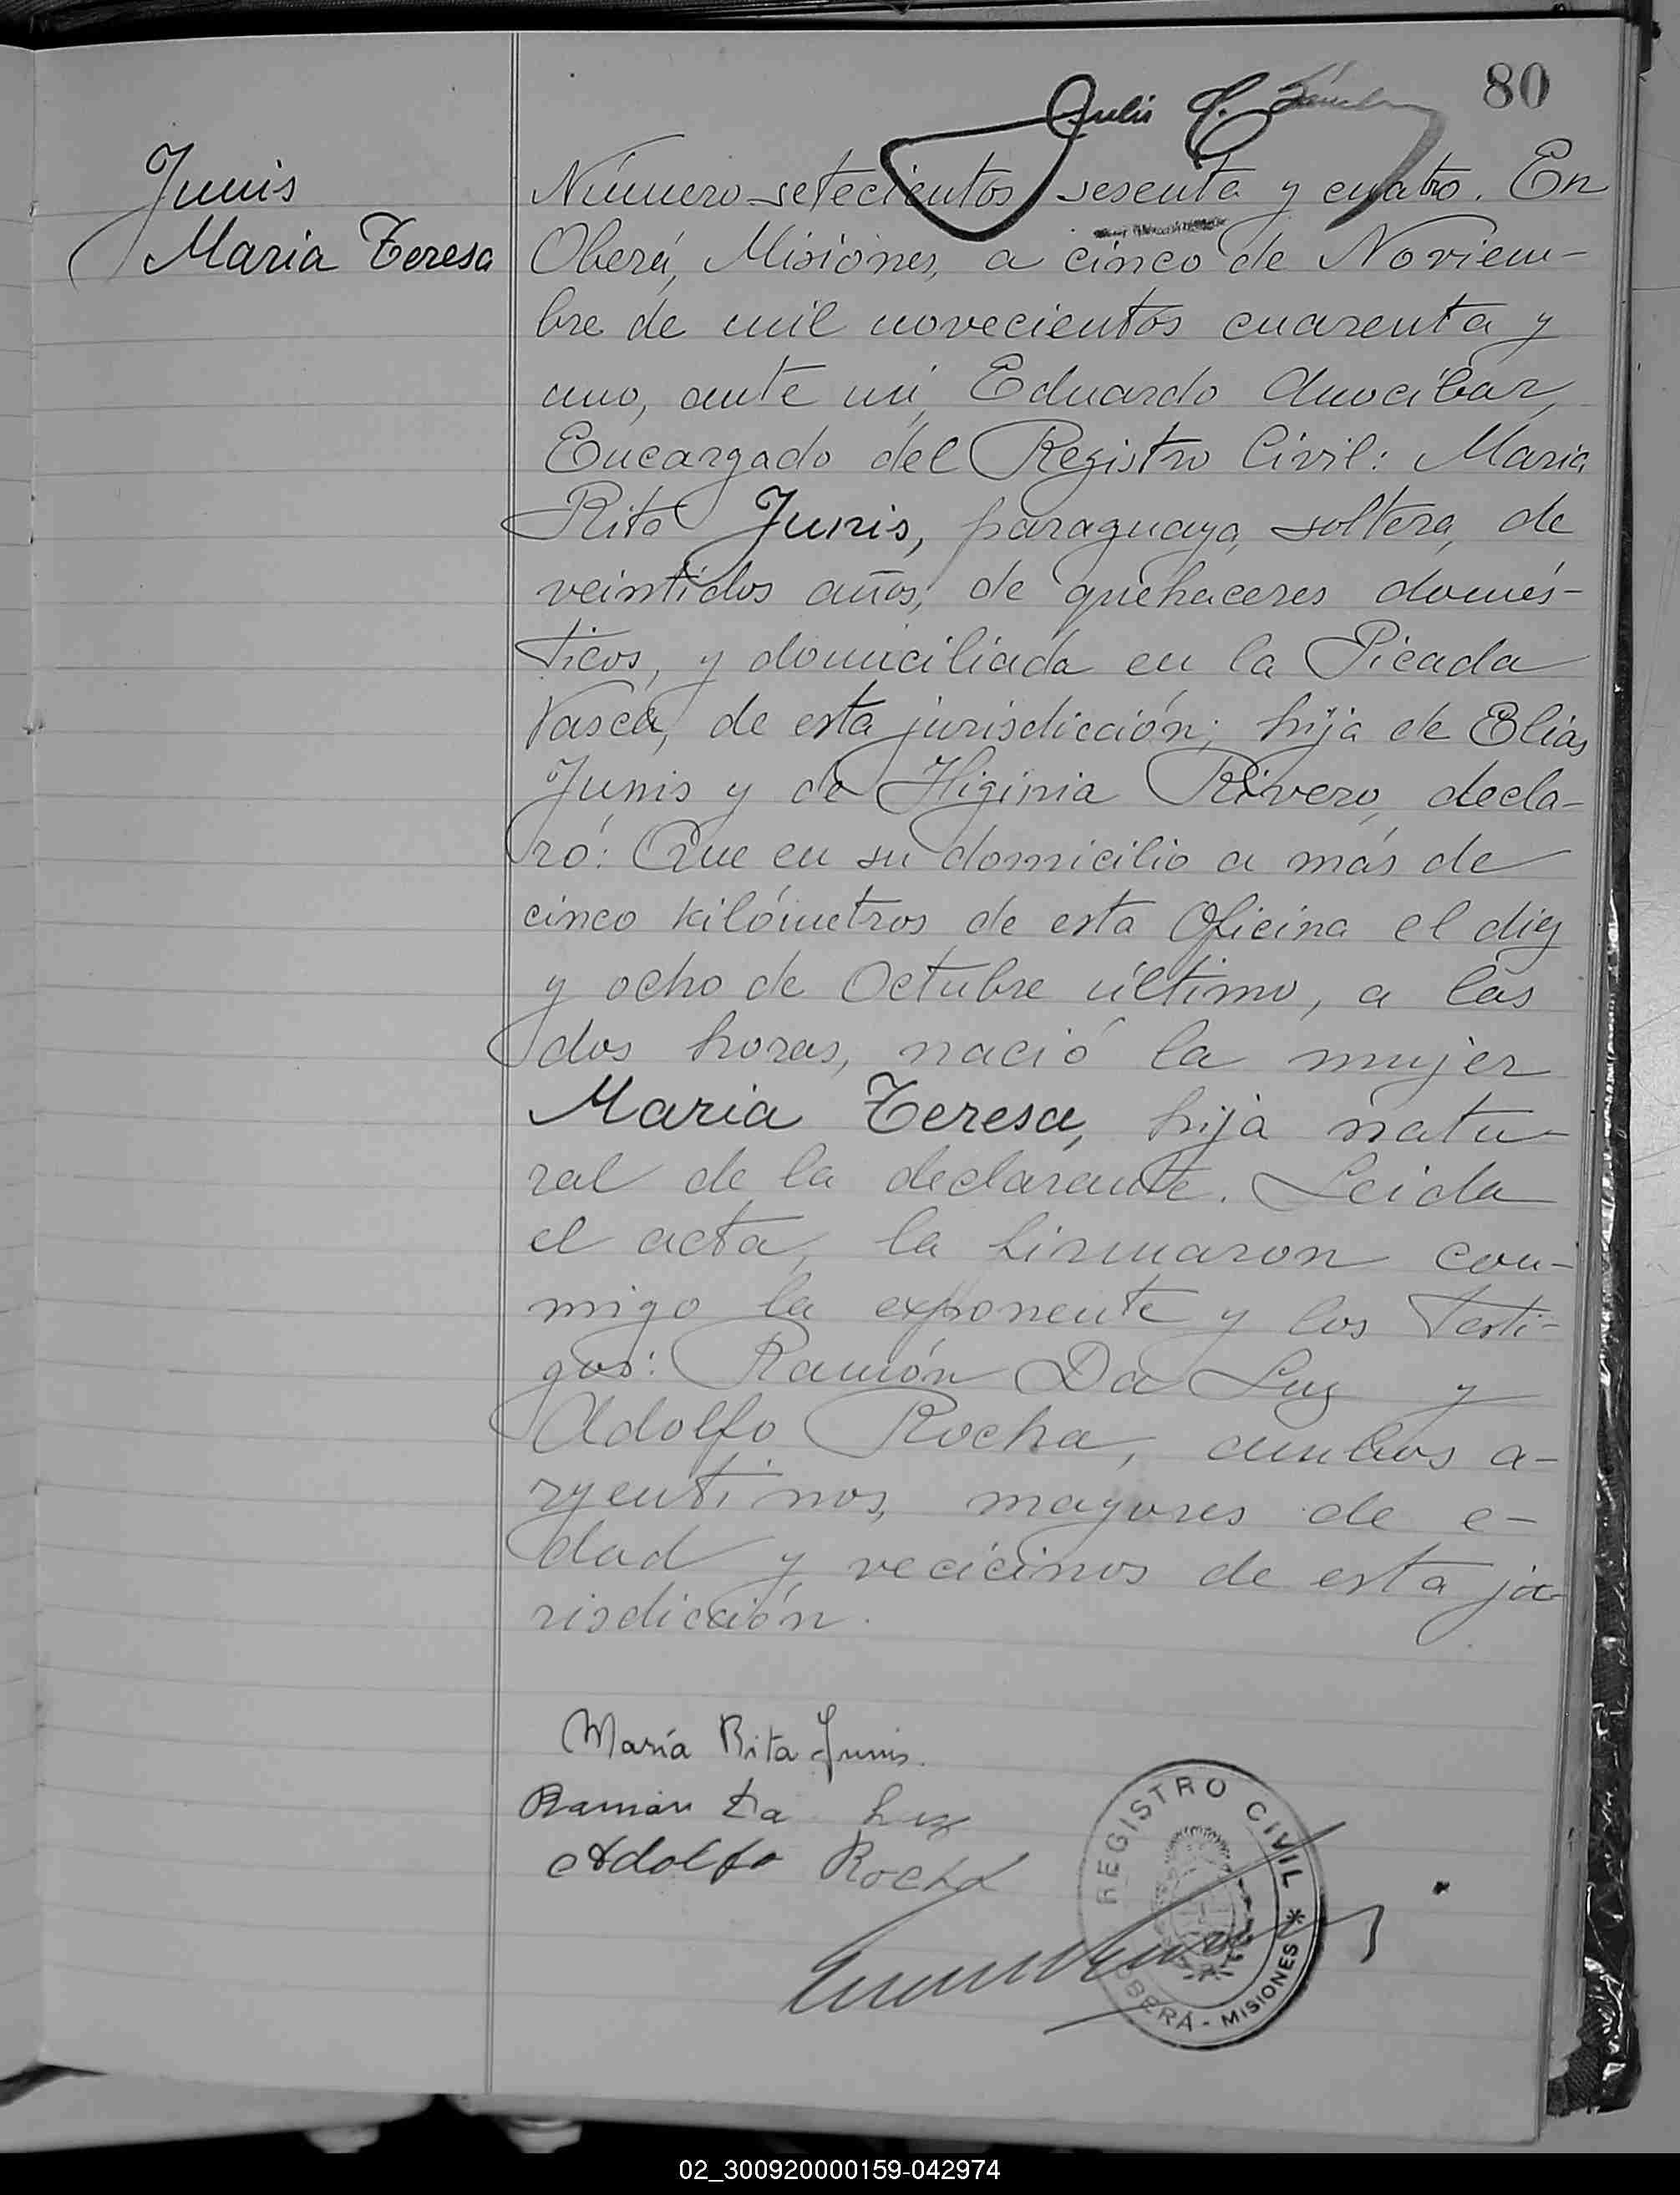 80
Julio
Junis
Maria Teresa
Número setecientos sesenta y cuatro. En
Oberá, Misiones, a cinco de Noviem-
bre de mil novecientos cuarenta y
uno, ante mi, Eduardo Amocibar,
Encargado del Registro Civil: Maria
Rita Junis, paraguaya, soltera, de
veintidos años, de quehaceres domés-
ticos, y domiciliada en la Picada
Vasca, de esta jurisdicción; hija de Elias
Junis y de Higinia Rivero, decla-
ró: Que en su domicilio a más de
cinco kilómetros de esta Oficina el diez
y ocho de Octubre último, a las
dos horas, nació la mujer
Maria Teresa, hija natu-
ral de la declarante. Leida
el acta, la firmaron con-
migo la exponente y los testi-
gos: Ramón Da Luz y
Adolfo Rocha, ambos a-
rgentinos, mayores de e-
dad y vecicinos de esta ju-
risdicción.
María Rita Junis.
Ramón Da Luz
Adolfo Rocha
REGISTRO CIVIL
OBERÁ - MISIONES *
02_300920000159-042974